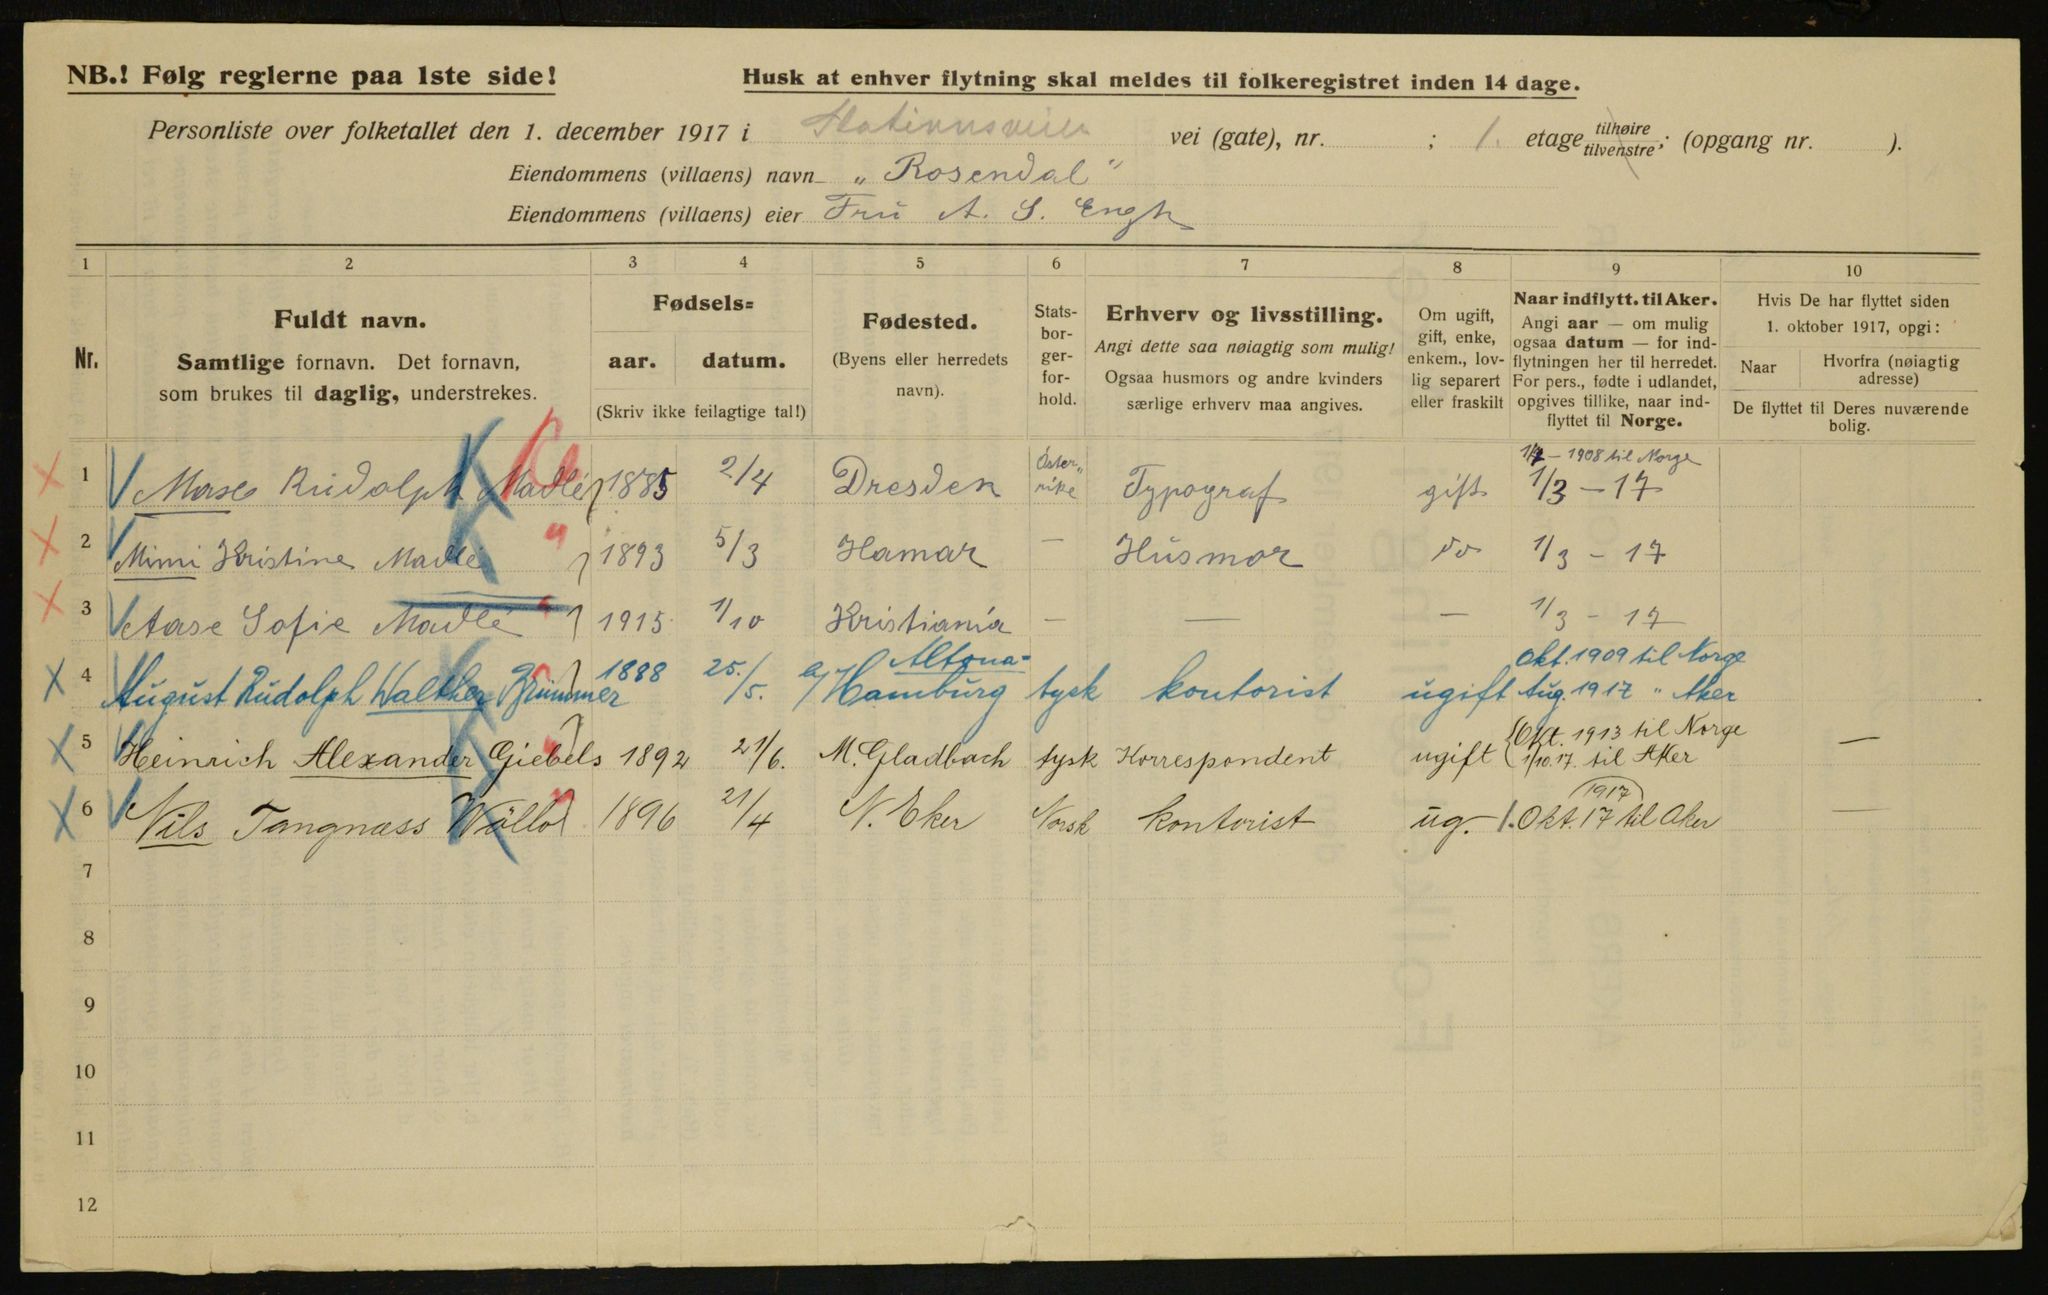 NB.! Følg reglerne paa 1ste side!
Husk at enhver flytning skal meldes til folkeregistret inden 14 dage.
Personliste over folketallet den 1. december 1917 i Stationsveien vei (gate), nr. ; 1. etage tilhøire tilvenstre; (opgang nr. ).
Eiendommens (villaens) navn „Rosendal“
Eiendommens (villaens) eier Fru A. S. Engh
1 2 3 4 5 6 7 8 9 10
Nr.
Fuldt navn.
Samtlige fornavn. Det fornavn,
som brukes til daglig, understrekes.
Fødsels=
aar. datum.
(Skriv ikke feilagtige tal!)
Fødested.
(Byens eller herredets
navn).
Stats-
bor-
ger-
for-
hold.
Erhverv og livsstilling.
Angi dette saa nøiagtig som mulig!
Ogsaa husmors og andre kvinders
særlige erhverv maa angives.
Om ugift,
gift, enke,
enkem., lov-
lig separert
eller fraskilt
Naar indflytt. til Aker.
Angi aar — om mulig
ogsaa datum — for ind-
flytningen her til herredet.
For pers., fødte i udlandet,
opgives tillike, naar ind-
flyttet til Norge.
Hvis De har flyttet siden
1. oktober 1917, opgi:
Naar Hvorfra (nøiagtig
adresse)
De flyttet til Deres nuværende
bolig.
– 1908 til Norge
1 Rudolph Madlé 1885 2/4 Dresden Öster„rike Typograf gift 1/3 – 17
2 Mimi Kristine Madlé 1893 5/3 Hamar — Husmor do 1/3 – 17
3 Aase Sofie Madlé 1915 1/10 Kristiania — — — 1/3 – 17
Altona- Okt. 1909 til Norge
4 August Rudolph Walther Brümmer 1888 25./5. Hamburg tysk kontorist ugift Aug. 1917 „ Aker
Okt. 1913 til Norge
5 Heinrich Alexander Giebels 1892 21/6. M. Gladbach tysk Korrespondent ugift 1/10.17. til Aker —
1917
6 Nils Tangnæss Wøllo 1896 21/4 N. Eker Norsk kontorist ug. 1. Okt. 17 til Aker —
7
8
9
10
11
12